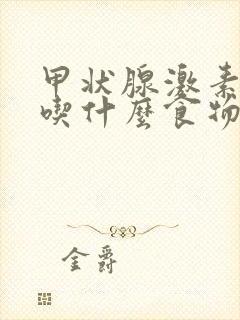 甲状腺激素
喫什麼食物
金爵